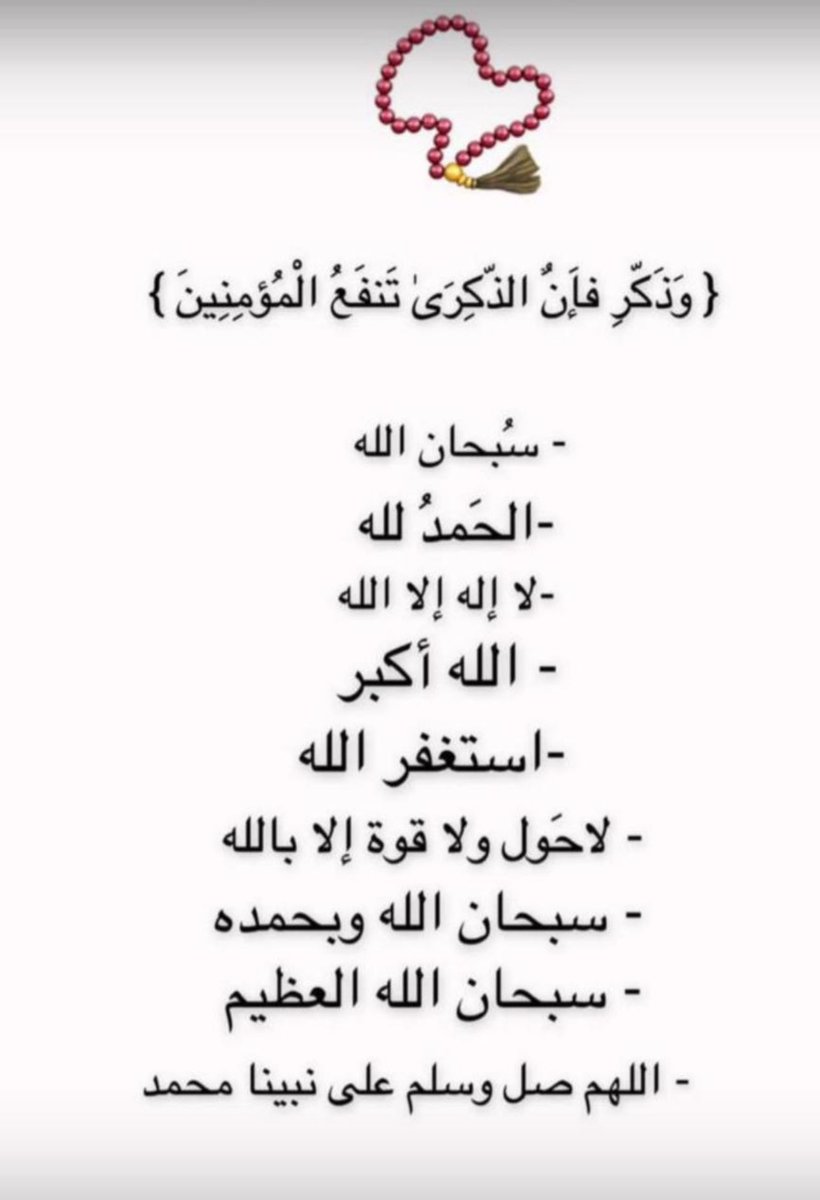 { وَذَكّرِ فَإَنٌ الذّكِرَىٰ تَنفَعُ الْمُؤمِنِينَ }
- سُبحان الله
-الحَمدُ لله
-لا إله إلا الله
- الله أكبر
-استغفر الله
- لاحَول ولا قوة إلا بالله
- سبحان الله وبحمده
- سبحان الله العظيم
- اللهم صل وسلم على نبينا محمد